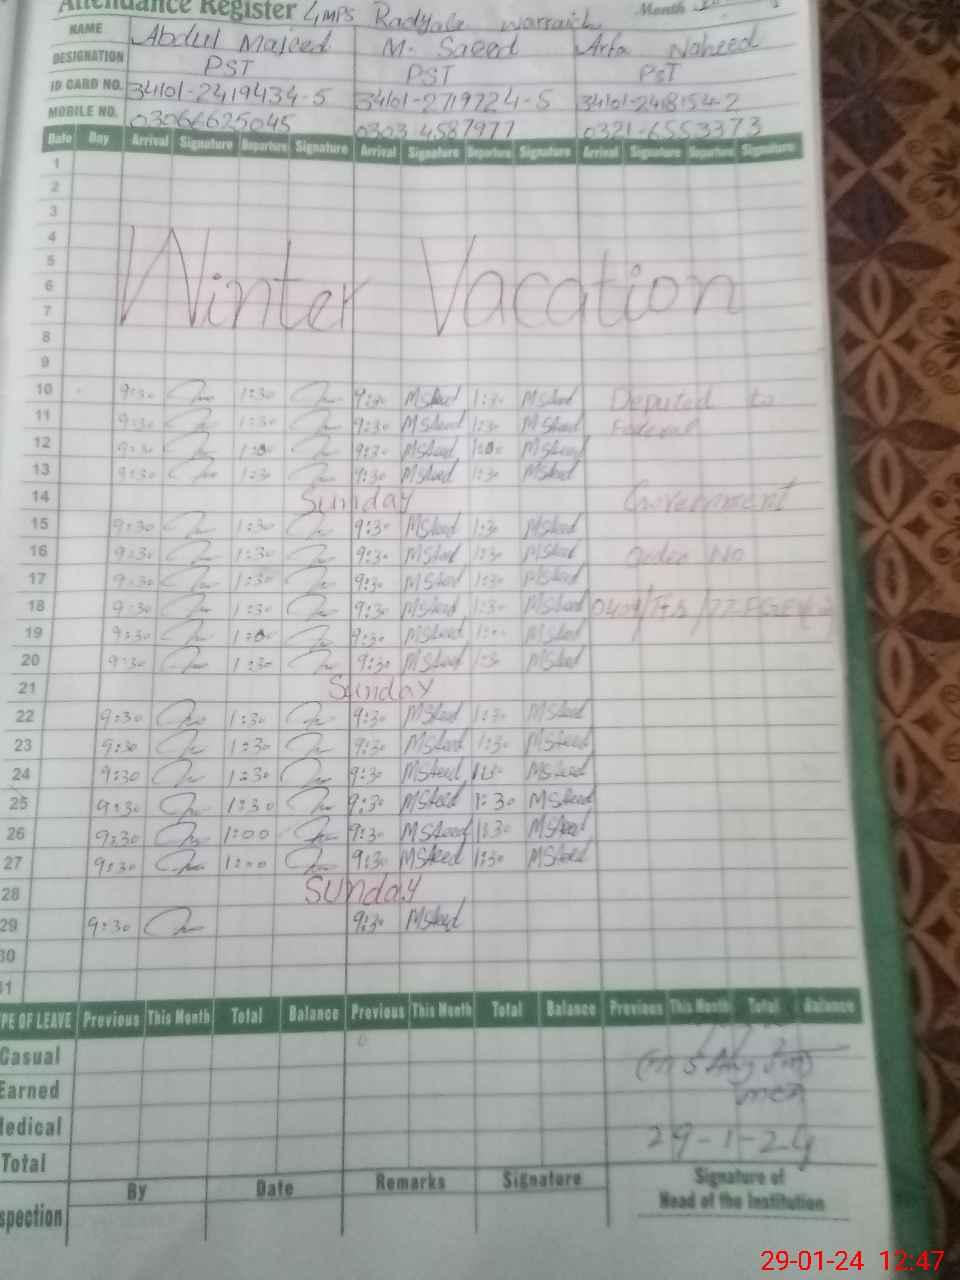 Attendance Register GMPS Radyala Warraich Month
NAME Abdul Majeed M. Saeed Arfa Naheed
DESIGNATION PST PST PST
ID CARD NO. 34101-2419434-5 34101-2719724-5 34101-2418154-2
MOBILE NO. 03066625045 0303 4587977 0321-6553373
Date Day Arrival Signature Departure Signature Arrival Signature Departure Signature Arrival Signature Departure Signature
1
2
3
4
5
6
7
Winter Vacation
8
9
10 9:30 1:30 9:30 MSaeed 1:30 MSaeed Deputed to
11 9:30 1:30 9:30 MSaeed 1:30 MSaeed Federal
12 9:30 9:30 MSaeed MSaeed
13 9:30 1:30 9:30 MSaeed 1:30 MSaeed
14 Sunday Government
15 9:30 1:30 9:30 MSaeed 1:30 MSaeed
16 9:30 1:30 9:30 MSaeed 1:30 MSaeed Order No
17 9:30 1:30 9:30 MSaeed 1:30 MSaeed
18 9:30 1:30 9:30 MSaeed 1:30 MSaeed
19 9:30 9:30 MSaeed MSaeed
20 9:30 1:30 9:30 MSaeed 1:30 MSaeed
21 Sunday
22 9:30 1:30 9:30 MSaeed 1:30 MSaeed
23 9:30 1:30 9:30 MSaeed 1:30 MSaeed
24 9:30 1:30 9:30 MSaeed 1:30 MSaeed
25 9:30 1:30 9:30 MSaeed 1:30 MSaeed
26 9:30 1:00 9:30 MSaeed 1:30 MSaeed
27 9:30 1:00 9:30 MSaeed 1:30 MSaeed
28 Sunday
29 9:30 9:30 MSaeed
30
31
PE OF LEAVE Previous This Month Total Balance Previous This Month Total Balance Previous This Month Total Balance
Casual
Earned
Medical
Total 29-1-24
By Date Remarks Signature Signature of
Head of the Institution
spection
29-01-24 12:47